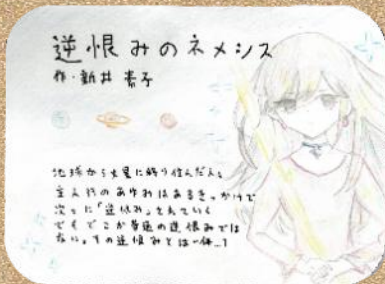 逆恨みのネメシス
作・新井素子
地球から火星に移り住んだ人々
主人公のあゆみはあるきっかけで
次々に「逆恨み」をされていく
でもどこか普通の逆恨みでは
ない。その逆恨みとは一体…?